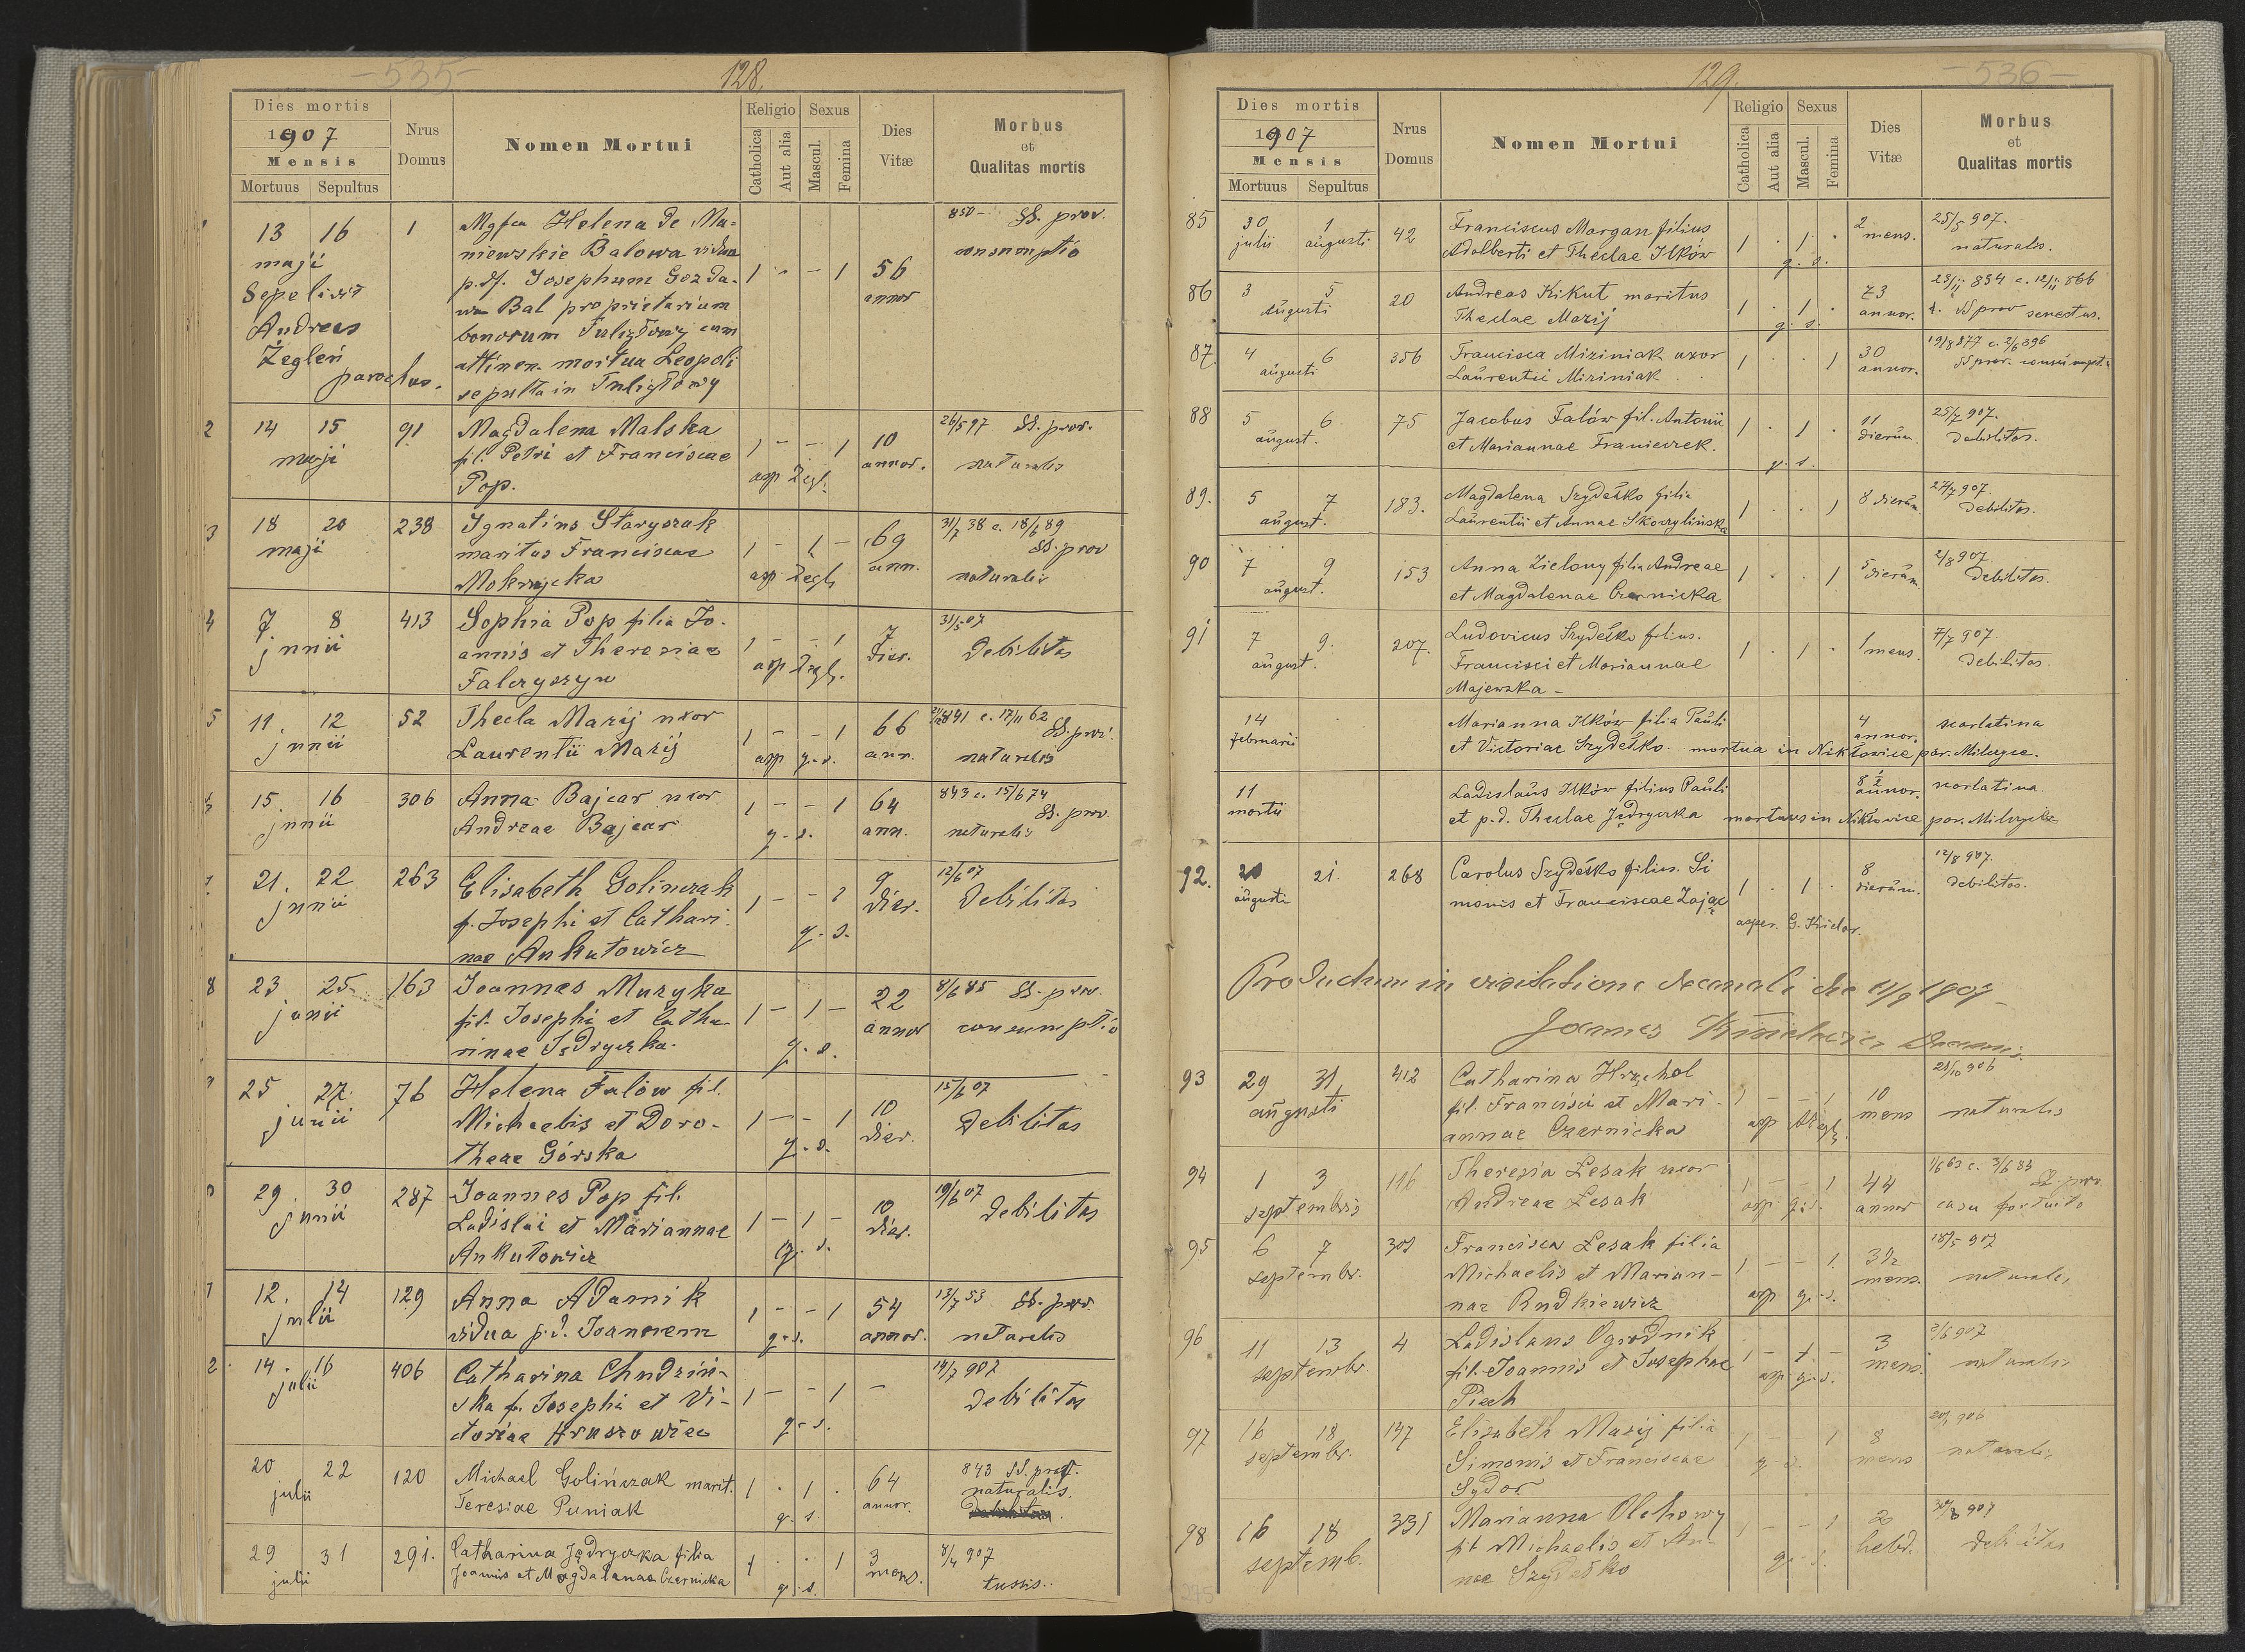 - 535 -
128.
Dies mortis
1907
Mensis
Mortuus Sepultus
Nrus Domus
Nomen Mortui
Religio
Catholica
Aut alia
Sexus
Mascul.
Femina
Dies Vitæ
Morbus et Qualitas mortis
13 16 1 Mgfca Helena de Ma= 850 - SS. prov.
maji niewskie Balowa vidua consumptio
Sepelivit p. df. Josephum Gozda- 1 - - 1 56
Andreas wa Bal proprietarium annor
Żegleń bonorum Tuligłowy cum
parochus. attinen. mortua Leopoli
sepulta in Tuligłowy
2 14 15 91 Magdalena Malska 1 - - 1 10 26/5 97 SS. prov.
maji fil. Petri et Franciscae asp Żegl. annor. naturalis
Pop.
3 18 20 238 Ignatius Staryszak 1 - 1 - 69 31/7 38 c. 18/6 89
maji maritus Franciscae ann. SS. prov
Mokrzycka asp Żegl. naturalis
4 7 8 413 Sophia Pop filia Jo- 1 - - 1 7 31/5 07
junii annis et Theresiae asp Żegl. dier. Debilitas
Falczyszyn
5 11. 12 52 Thecla Mazij uxor 1 - - 1 66 841 c. 17/11 62
junii Laurentii Mazij asp g. s. ann. naturalis
15. 16 306 Anna Bajcar uxor 1 - - 1 64 843 c. 15/6 74
junii Andreae Bajcar g. s. ann. SS. prov. naturalis
21. 22 263 Elisabeth Golinczak 1 - - 1 9 12/6 07
junii f. Josephi et Cathari- g. s. dier. Debilitas
nae Ankutowicz
8 23 25 163 Joannes Muzyka 1 - 1 - 22 8/6 85 SS. prov.
junii fil. Josephi et Catha- annor consumptio
rinae Jędryczka. g. s.
25 27. 76 Helena Falów fil. 1 - - 1 10 15/6 07
junii Michaelis et Doro- g. s. dier. Debilitas
theae Górska
29. 30 287 Joannes Pop fil. 1 - 1 - 10 19/6 07
junii Ladislai et Mariannae g. s. dier. Debilitas
Ankutowicz
1 12. 14 129 Anna Adamik 1 - - 1 54 13/7 53 SS. prov.
julii vidua p. d. Joannem g. s. annor. naturalis
2 14. 16 406 Catharina Chudziń- 1 - - 1 - 14/7 907
julii ska f. Josephi et Vi- g. s. Debilitas
ctoriae Hruszowiec
20 22 120 Michael Golińczak marit. 1 . 1 . 64 843 SS. prov.
julii Teresiae Puniak g. s. annor. naturalis.
29 31 291. Catharina Jędryczka filia 1 . . 1 3 8/4 907
julii Joannis et Magdalenae Czernicka g. s. mens. tussis.
129.
- 536 -
Dies mortis
1907
Mensis
Mortuus Sepultus
Nrus Domus
Nomen Mortui
Religio
Catholica
Aut alia
Sexus
Mascul.
Femina
Dies Vitæ
Morbus et Qualitas mortis
85 30 1 42 Franciscus Morgan filius 1 . 1 . 2 25/5 907.
julii augusti Adalberti et Theclae Ilków g. s. mens. naturalis.
86 3 5 20 Andreas Kikut maritus 1 . 1 . 73 23/11 834 c. 12/11 866
augusti Theclae Mazij g. s. annor. SS prov senectus.
87. 4 6 356 Francisca Miziniak uxor 1 . . 1 30 19/8 877 c. 2/6 896
augusti Laurentii Miziniak annor. SS prov. consumpti
88 5 6 75 Jacobus Falów fil. Antonii 1 . 1 . 11 25/7 907.
august. et Mariannae Franieczek. g. s. dierum. Debilitas.
89. 5 7 183. Magdalena Szydełko filia 1 . . 1 8 dierum 27/7 907
august. Laurentii et Annae Skoczylińska Debilitas.
90 7 9 153 Anna Zielony filia Andreae 1 . . 1 5 dierum 2/8 907
august. et Magdalenae Czernicka Debilitas.
91 7 9. 207. Ludovicus Szydełko filius. 1 . 1 . 1 mens. 7/7 907.
august. Francisci et Mariannae Debilitas.
Majewska -
14 Marianna Ilków filia Pauli 4 scarlatina
februarii et Victoriae Szydełko. mortua in Nikłowice par. Milczyce. annor.
11 Ladislaus Ilków filius Pauli 8 1/2 annor. scarlatina.
martii et p. d. Theclae Jędryczka mortuus in Nikłowice par. Milczyce
92. 20 21. 268 Carolus Szydełko filius Si 1 . 1 . 8 12/8 907.
augusti monis et Franciscae Zając dierum. debilitas.
asper. G.
Productum in visitatione decanali die 11/9 1907
Joannes Decanus.
93 29 31 412 Catharina Hrychol 1 - - 1 10 28/10 906
augusti fil. Francisci et Mari- asp mens naturalis
annae Czernicka
94 1 3 116 Theresia Lesak uxor 1 - - 1 44 1/6 63 c. 3/6 83
septembris Andreae Lesak asp g. s. annor SS. prov. casu fortuito
95 6 7 301 Francisca Lesak filia 1 - - 1. 3 1/2 18/5 907
septembr. Michaelis et Marian- asp g. s. mens. naturalis
nae Rudkiewicz
96 11 13 4 Ladislaus Ogrodnik 1 - 1 - 3 2/6 907
septembr. fil. Joannis et Josephae asp g. s. mens. naturalis
Piech
97 16 18 147 Elisabeth Mazij filia 1 - - 1 8 906
septembr. Simonis et Franciscae g. s. mens naturalis
Sydor
98 16 18 331 Marianna Olchowy 1 - - 1 2 30/8 907
septemb. fil Michaelis et An- g. s. hebd. debilitas
nae Szydełko
275